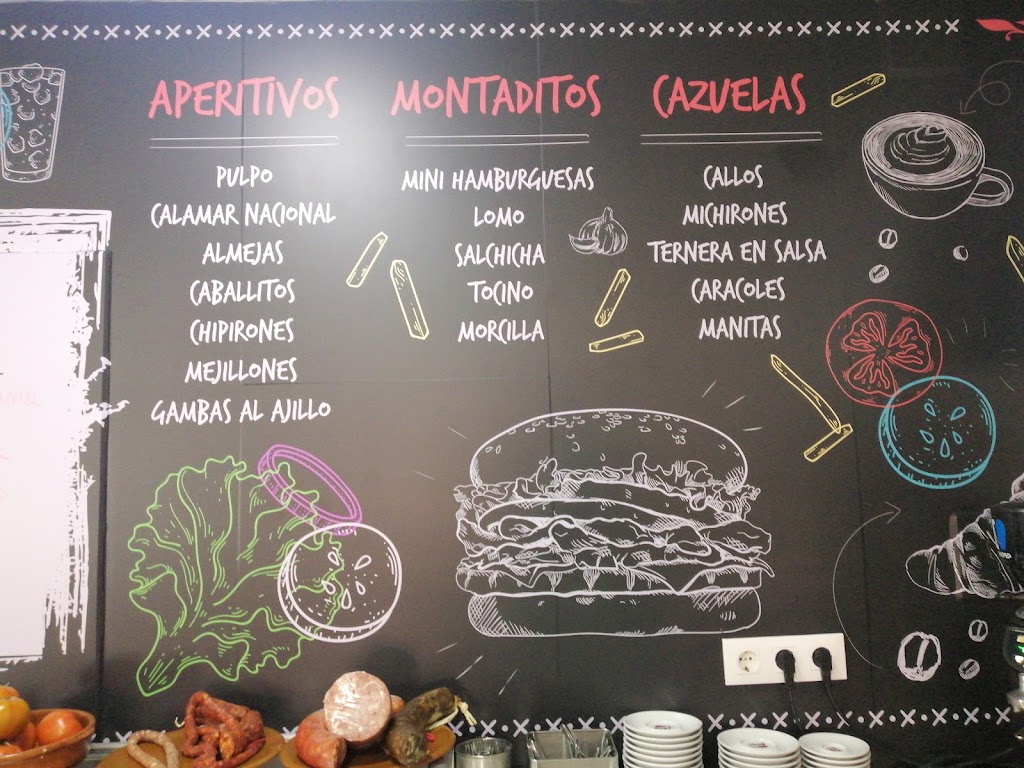 APERITIVOS
PULPO
CALAMAR NACIONAL
ALMEJAS
CABALLITOS
CHIPIRONES
MEJILLONES
GAMBAS AL AJILLO
MONTADITOS
MINI HAMBURGUESAS
LOMO
SALCHICHA
TOCINO
MORCILLA
CAZUELAS
CALLOS
MICHIRONES
TERNERA EN SALSA
CARACOLES
MANITAS